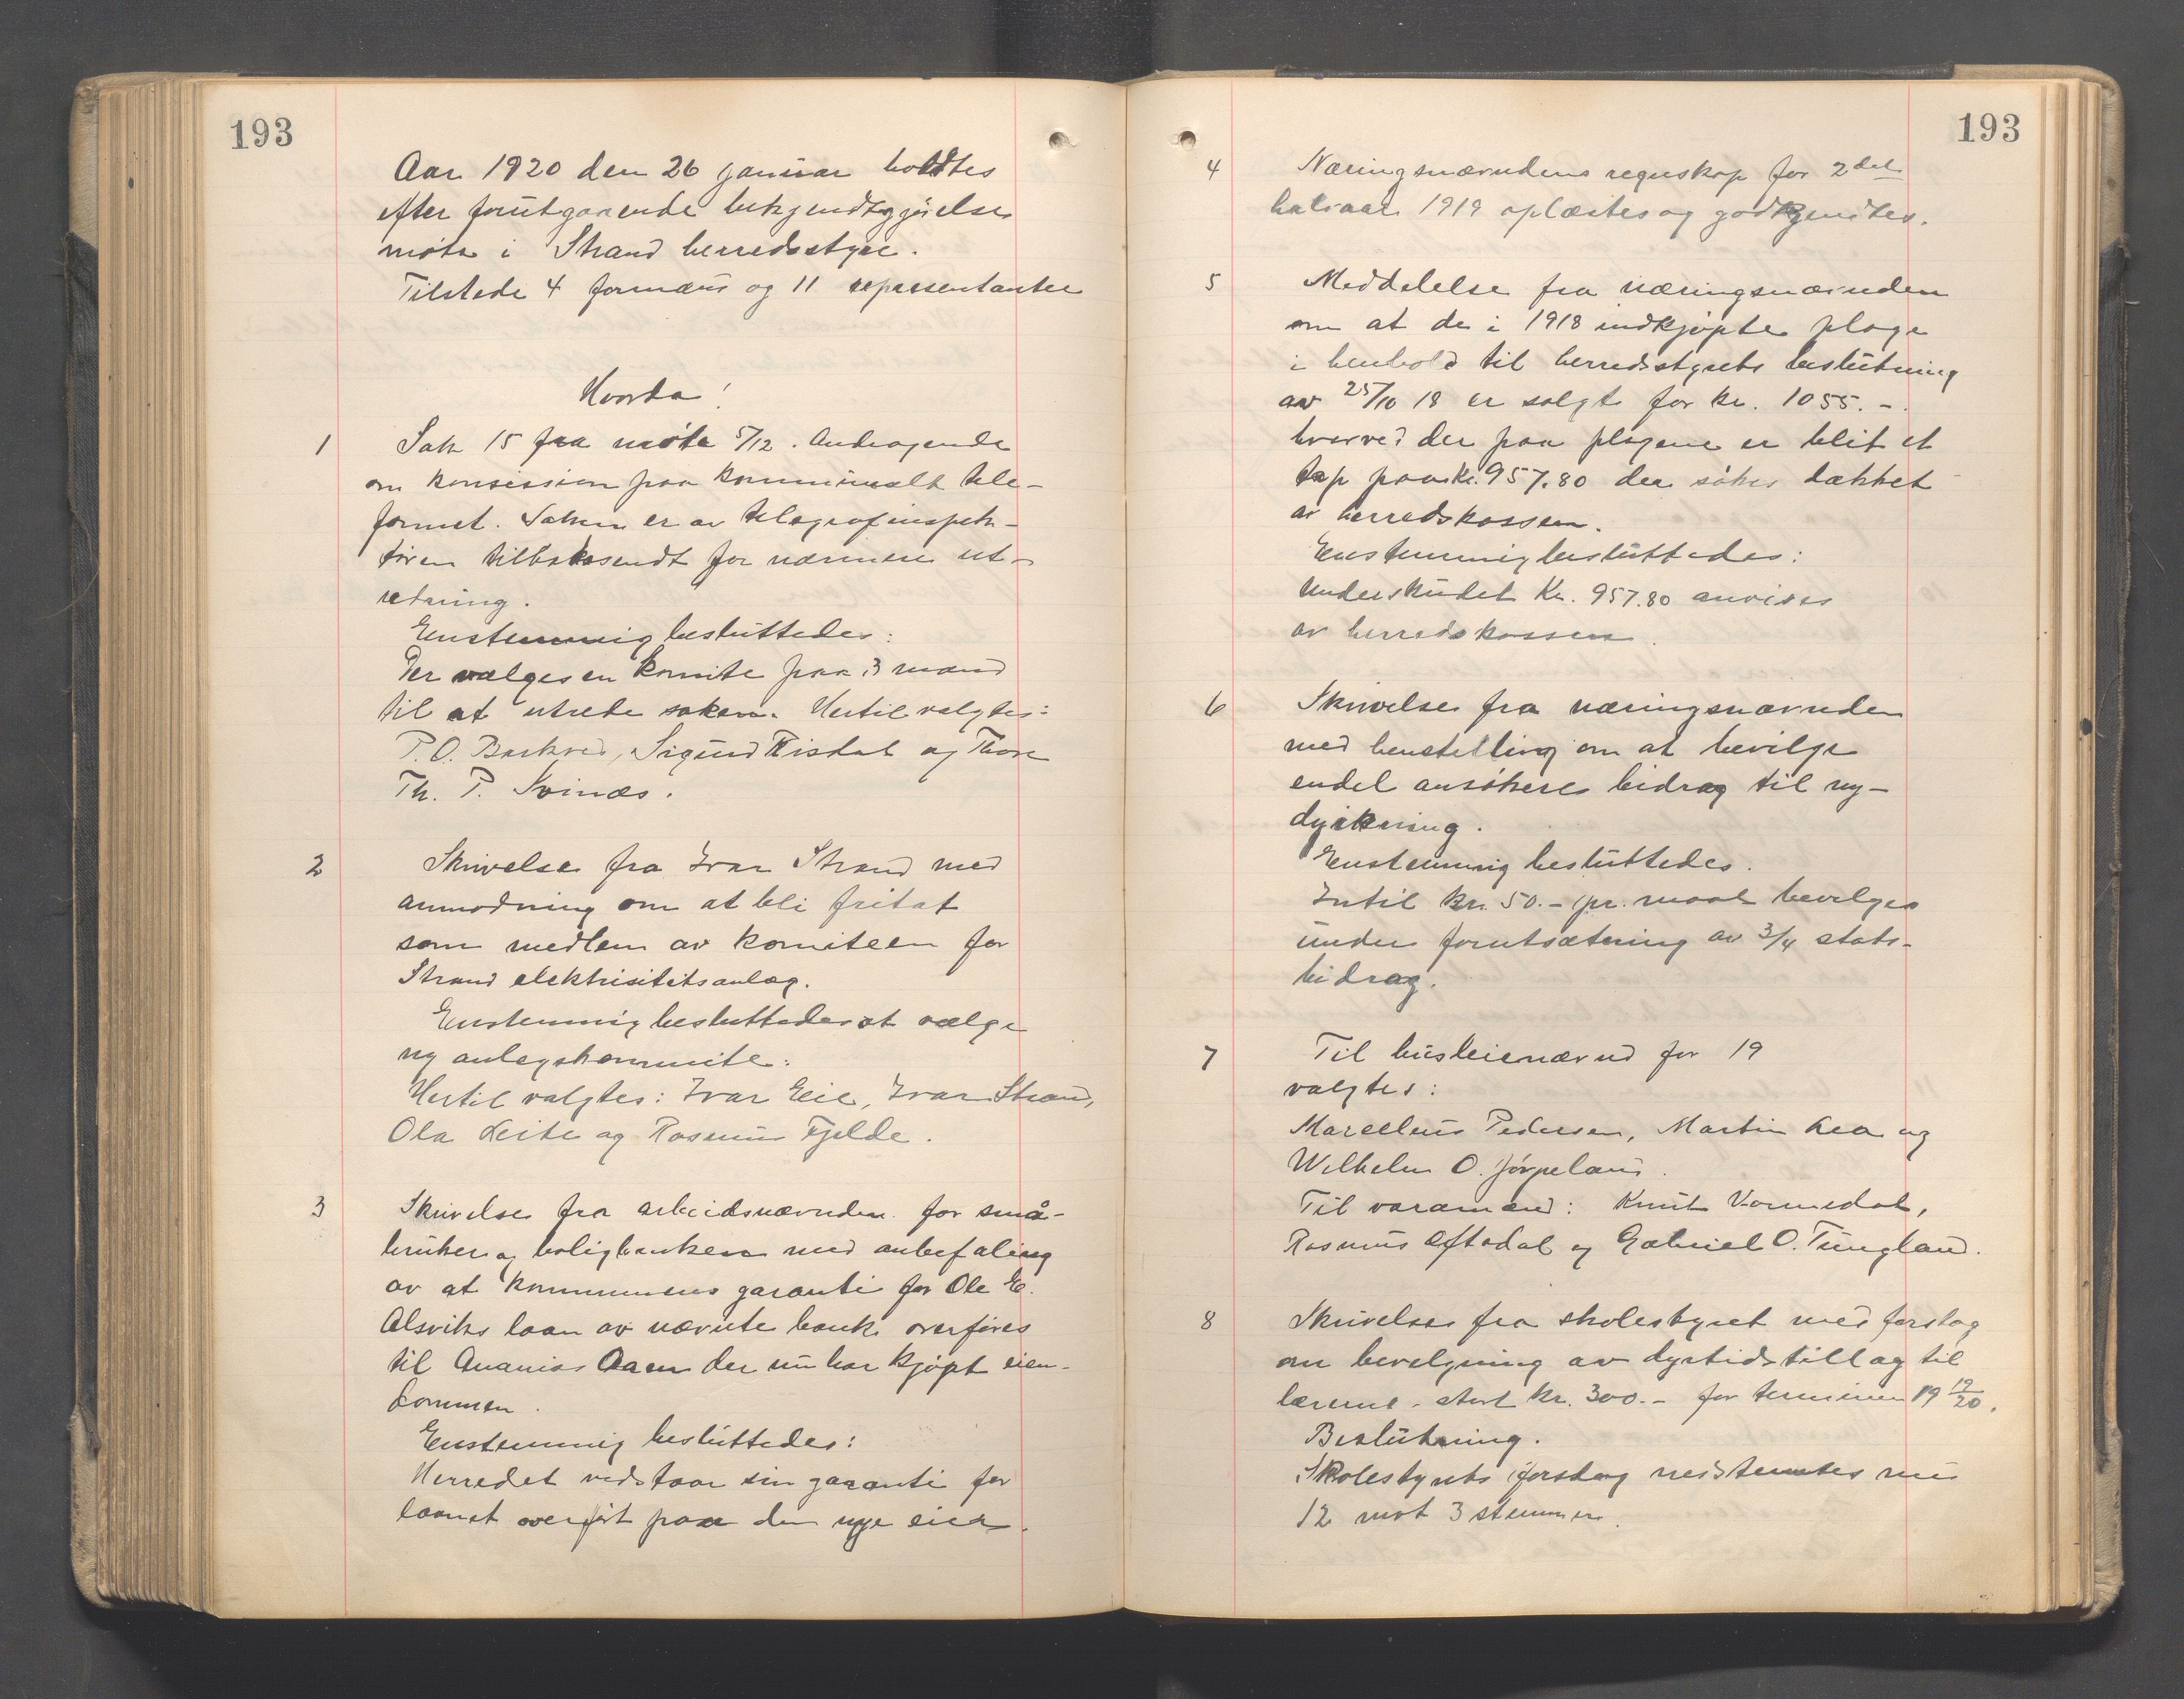 193
Aar 1920 den 26 januar holdtes
efter forutgaaende bekjendtgjørelse
møte i Strand herredsstyre.
Tilstede 4 formænd og 11 representanter
Hvorda!
1 Sak 15 fra møte 5/12. Andragende
om konsession paa kommunalt tele-
fonnet. Saken er av telegrafinspek-
tøren tilbakesendt for nærmere ut-
redning.
Enstemmig besluttedes:
Der vælges en komite paa 3 mand
til at utrede saken. Hertil valgtes:
P. O. Barkved, Sigurd Riisdal og Thore
Th. P. Svines.
2 Skrivelse fra Ivar Strand med
anmodning om at bli fritat
som medlem av komiteen for
Strand elektrisitetsanlæg.
Enstemmig besluttedes at vælge
ny anlegskommite:
Hertil valgtes: Ivar Eie, Ivar Strand,
Ola Leite og Rasmus Fjelde.
3 Skrivelse fra arbeidsnævnden for små-
bruker og boligbanken med anbefaling
av at kommunens garanti for Ole E.
Alsviks laan av nævnte bank overføres
til Ananias Aasen der nu har kjøpt eien-
dommen.
Enstemmig besluttedes:
Herredet vedstaar sin garanti for
laanet overført paa den nye eier.
193
4 Næringsnævndens regnskap for 2det
halvaar 1919 oplæstes og godkjendtes.
5 Meddelelse fra næringsnævnden
om at de i 1918 indkjøpte ploge
i henhold til herredsstyrets beslutning
av 25/10 18 er solgt for kr. 1055.-
hvorved der paa plogene er blit et
tap paa kr. 957.80 der søkes dækket
av herredskassen.
Enstemmig besluttedes:
Underskudet Kr. 957.80 anvises
av herredskassen.
6 Skrivelse fra næringsnævnden
med henstelling om at bevilge
endel ansøkere bidrag til ny-
dyrkning.
Enstemmig besluttedes.
Intil kr. 50.- pr. maal bevilges
under forutsætning av 3/4 stats-
bidrag.
7 Til husleienævnd for 19
valgtes:
Marcelius Pedersen, Martin Lea og
Wilhelm O. Jørpeland.
Til varamænd: Knut Vormedal,
Rasmus Øftedal og Gabriel O. Tungland.
8 Skrivelse fra skolestyret med forslag
om bevilgning av dyrtidstillag til
lærerne stort kr. 300.- for terminen 19 19/20.
Beslutning.
Skolestyrets forslag nedstemtes med
12 mot 3 stemmer.